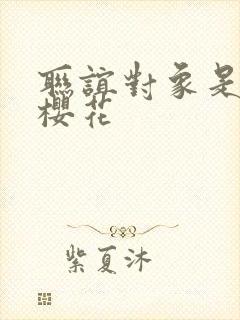 聯誼對象是
櫻花
紫夏沐